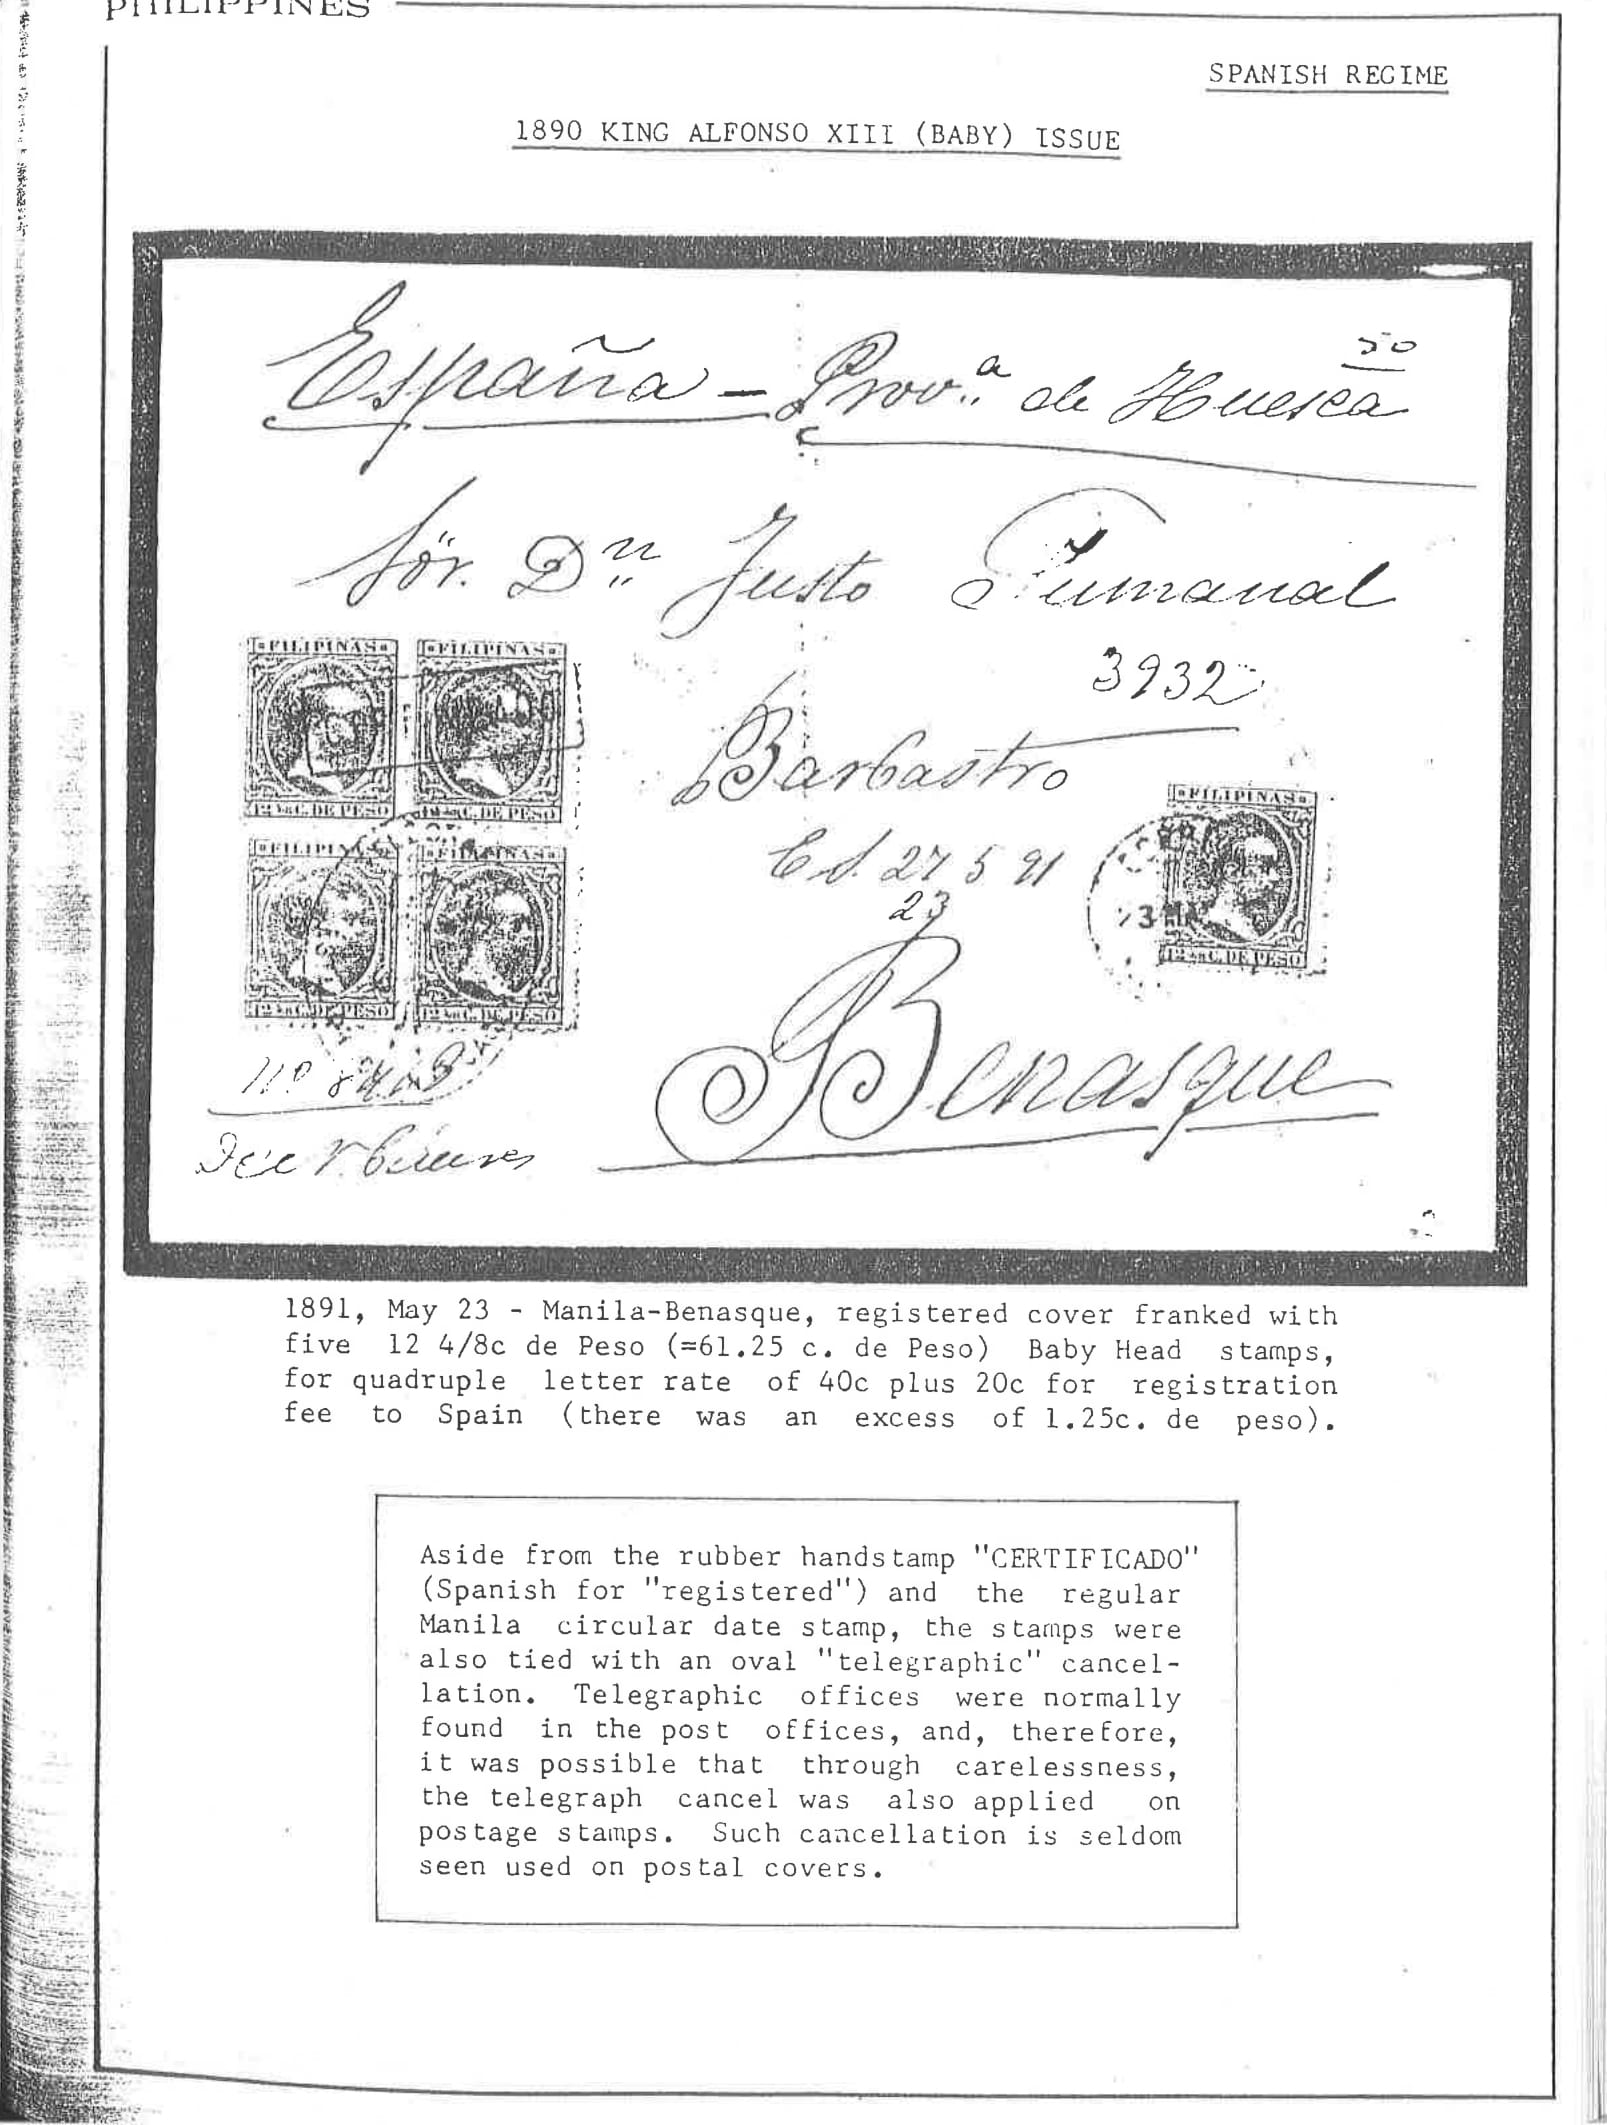 PHILIPPINES
SPANISH REGIME
1890 KING ALFONSO XIII (BABY) ISSUE
50
España - Prov.ª de Huesca
Sör. Dⁿ Justo
3932
Barbastro
27 5 91
23
Benasque
FILIPINAS
FILIPINAS
12 4/8 C. DE PESO
12 4/8 C. DE PESO
FILIPINAS
FILIPINAS
12 4/8 C. DE PESO
12 4/8 C. DE PESO
FILIPINAS
12 4/8 C. DE PESO
1891, May 23 - Manila-Benasque, registered cover franked with
five 12 4/8c de Peso (=61.25 c. de Peso) Baby Head stamps,
for quadruple letter rate of 40c plus 20c for registration
fee to Spain (there was an excess of 1.25c. de peso).
Aside from the rubber handstamp "CERTIFICADO"
(Spanish for "registered") and the regular
Manila circular date stamp, the stamps were
also tied with an oval "telegraphic" cancel-
lation. Telegraphic offices were normally
found in the post offices, and, therefore,
it was possible that through carelessness,
the telegraph cancel was also applied on
postage stamps. Such cancellation is seldom
seen used on postal covers.